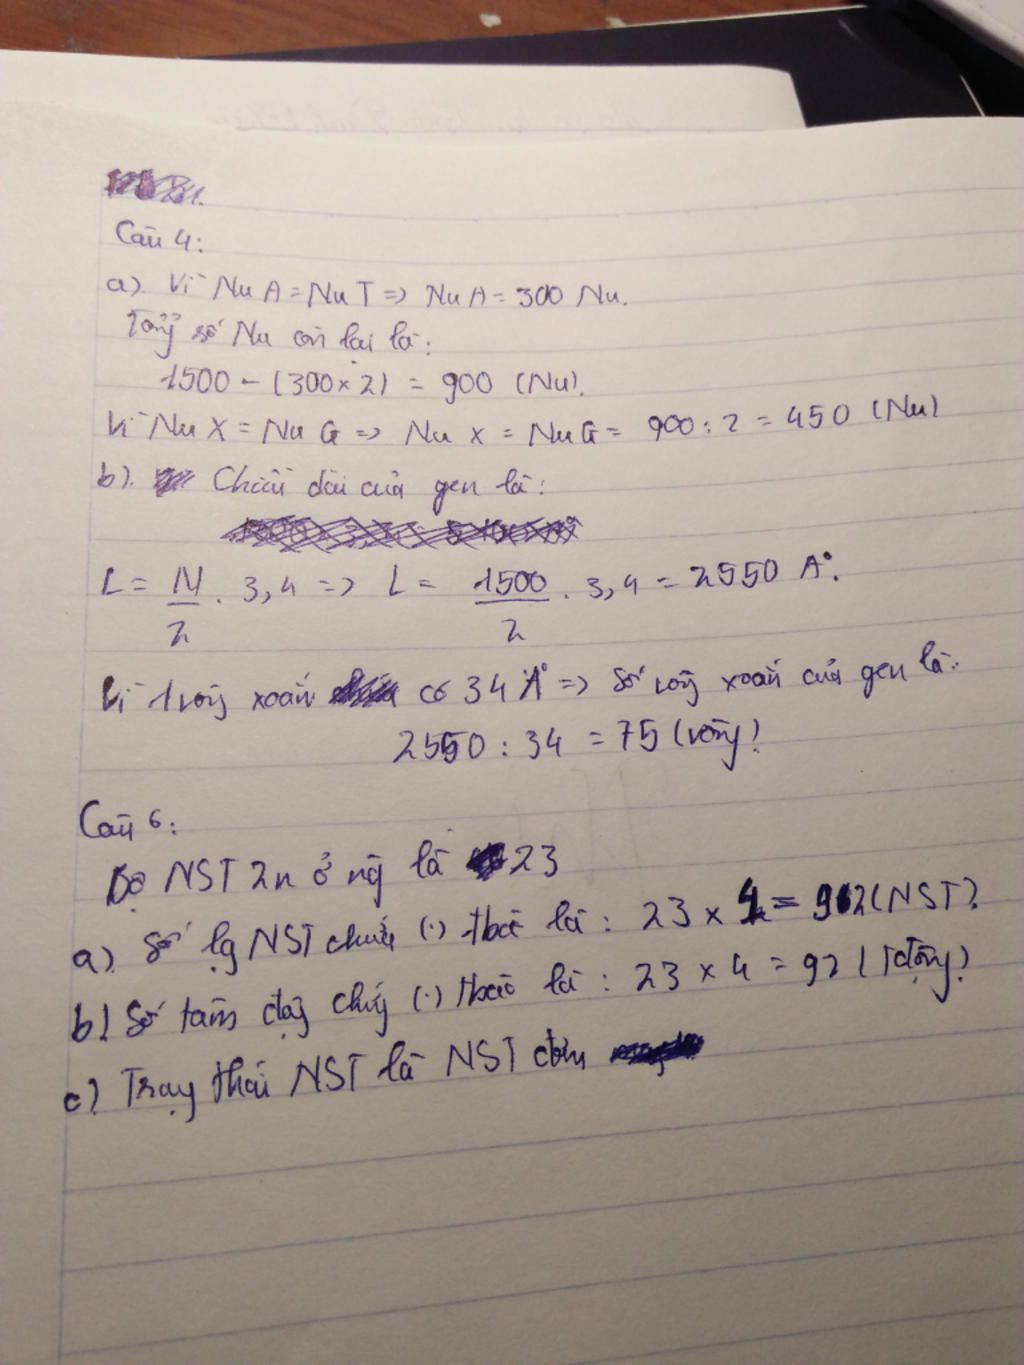 Câu 4:
a). Vì Nu A = Nu T => Nu A = 300 Nu.
Tổng số Nu còn lại là:
1500 - (300 x 2) = 900 (Nu).
Vì Nu X = Nu G => Nu X = Nu G = 900 : 2 = 450 (Nu)
b). Chiều dài của gen là:
L = N/2 . 3,4 => L = 1500/2 . 3,4 = 2550 A°.
Vì 1 vòng xoắn có 34 A° => Số vòng xoắn của gen là:
2550 : 34 = 75 (vòng)
Câu 6:
Bộ NST 2n ở ng là 23
a) Số lg NST chứa (.) tbào là: 23 x 4 = 92 (NST)
b) Số tâm động chứg (.) tbào là: 23 x 4 = 92 ( Tđộng)
c) Trạg thái NST là NST đơn